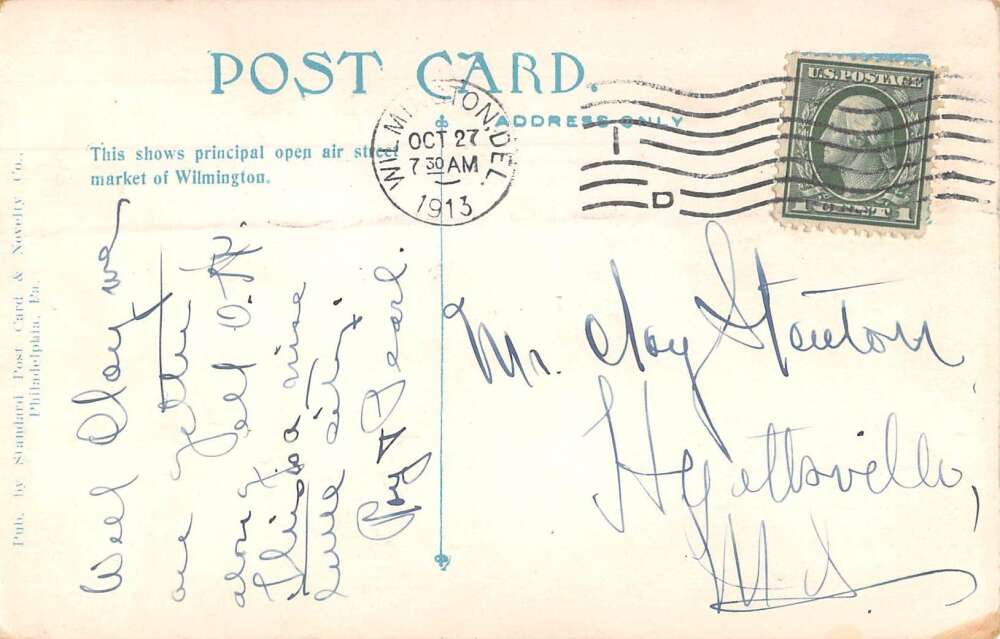 POST CARD.
ADDRESS ONLY
This shows principal open air street
market of Wilmington.
WILMINGTON, DEL.
OCT 27
7 30 AM
1913
I
D
U.S. POSTAGE
1 CENT 1
Pub. by Standard Post Card & Novelty Co.,
Philadelphia, Pa.
Well Clay we
are
along all O.K.
This is a nice
little city.
Roy & Pearl.
Mr. Clay Stanton
Hyattsville,
Md